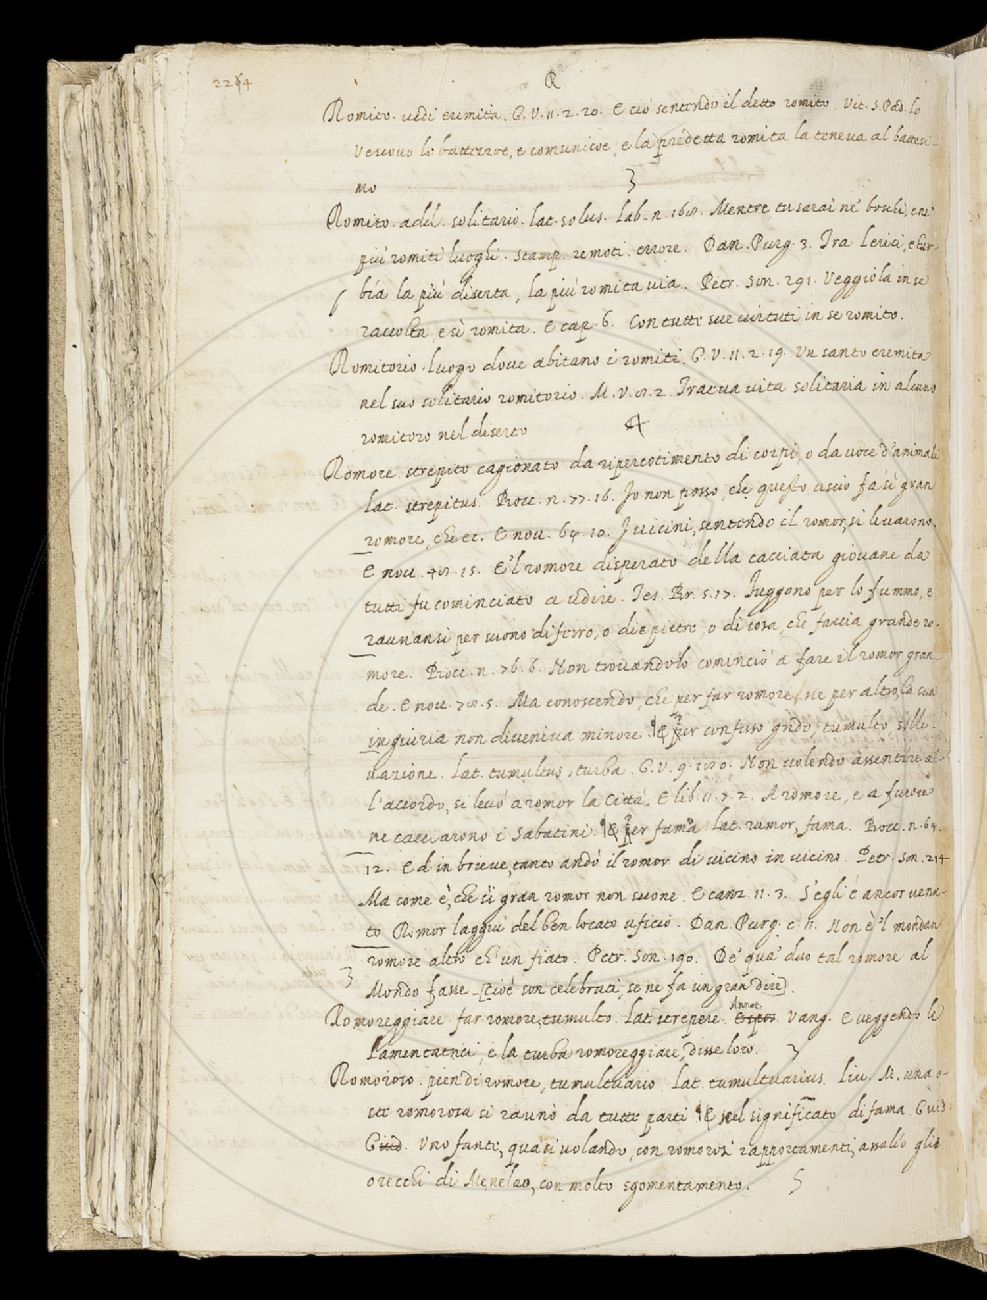 2264
R
Romito. vedi eremita. G. V. 11. 2. 20. E ciò sentendo il detto romito. Vit. S. Pad. Lo
Vescovo le battezzoe, e comunicoe, e la predetta romita la teneva al battesi-
mo
Romito. add. solitario. lat. solus. Lab. n. 168. Mentre tu sarai ne' boschi, e ne'
più romiti luoghi. stamp. remoti. errore. Dan. Purg. 3. Tra Lerici, e Tur-
bía la più diserta, la più romita via. Petr. Son. 291. Veggiola in se
raccolta, e sì romita. E cap. 6. Con tutte sue virtuti in se romito.
Romitorio. luogo dove abitano i romiti. G. V. 11. 2. 19. Un santo eremita
nel suo solitario romitorio. M. V. 8. 2. Traeva vita solitaria in alcuno
romitoro nel deserto
Romore. strepito cagionato da ripercotimento di corpi, o da voce d'animali
lat. strepitus. Bocc. n. 77. 16. Io non posso, che questo uscio fa sì gran
romore, che ec. E nov. 64. 10. I vicini, sentendo il romor, si levarono.
E nov. 48. 15. E'l romore disperato della cacciata giovane da
tutti fu cominciato a udire. Tes. Br. 5. 17. Fuggono per lo fummo, e
raunansi per suono di ferro, o di pietre, o di cosa, che faccia grande ro-
more. Bocc. n. 76. 6. Non trovandolo cominciò a fare il romor gran
de. E nov. 78. 5. Ma conoscendo, che per far romore, ne per altro, la sua
ingiuria non diveniva minore. ¶ E per confuso grido, tumulto, solle-
vazione. lat. tumultus, turba. G. V. 9. 280. Non volendo assentire al-
l'accordo, si levò a romor la Città. E lib. 11. 7. 2. A romore, e a furore
ne cacciarono i Sabatini. ¶ E per fama. lat. rumor, fama. Bocc. n. 64.
12. Ed in brieve, tanto andò il romor di vicino in vicino. Petr. Son. 214
Ma come è, che sì gran romor non suone. E canz. 11. 3. S'egli è ancor venu-
to Romor laggiù del ben locato uficio. Dan. Purg. c. 11. Non è 'l mondan
romore altro ch' un fiato. Petr. Son. 190. De' qua' duo tal romore al
Mondo fasse [cioè son celebrati, se ne fa un gran dire].
Romoreggiare. far romore, tumulto. lat. strepere. Annot. Vang. E veggendo le
lamentatrici, e la turba romoreggiare, disse loro.
Romoroso. pien di romore, tumultuario. lat. tumultuarius. Liv. M. una o-
ste romorosa si raunò da tutte parti ¶ E nel significato di fama. Guid.
Guid. Uno fante, quasi volando, con romorosi rapportamenti, assalío gli
orecchi di Menelao, con molto sgomentamento.